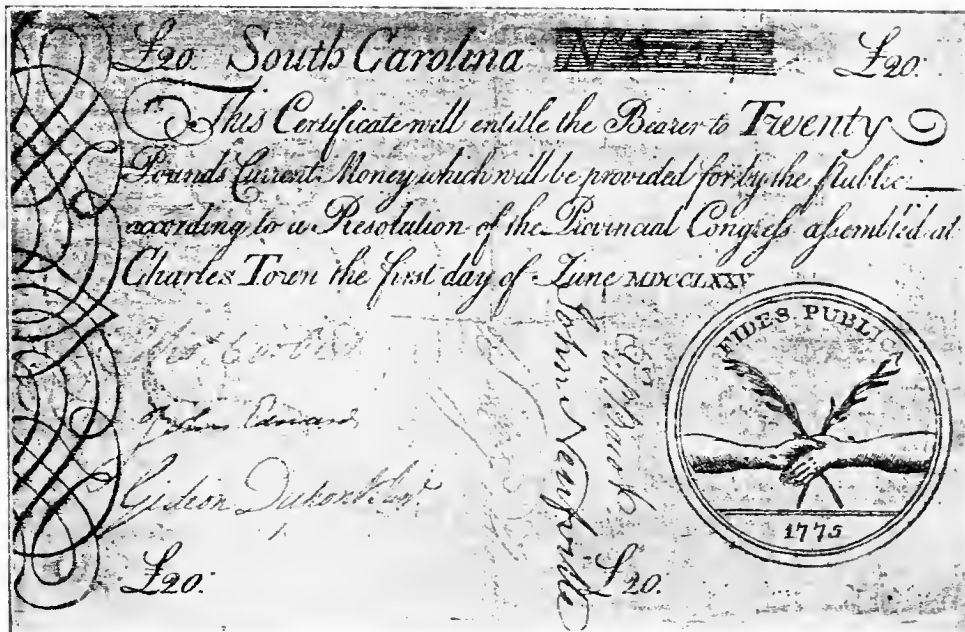 £20: South Carolina No £20:
This Certificate will entitle the Bearer to Twenty
Pounds Current Money which will be provided for by the Public
according to a Resolution of the Provincial Congreſs aſsembled at
Charles Town the first day of June MDCCLXXV
FIDES PUBLICA
John Edwards
Gideon Dupont Junr
John Neufville
1775
£20: £20: